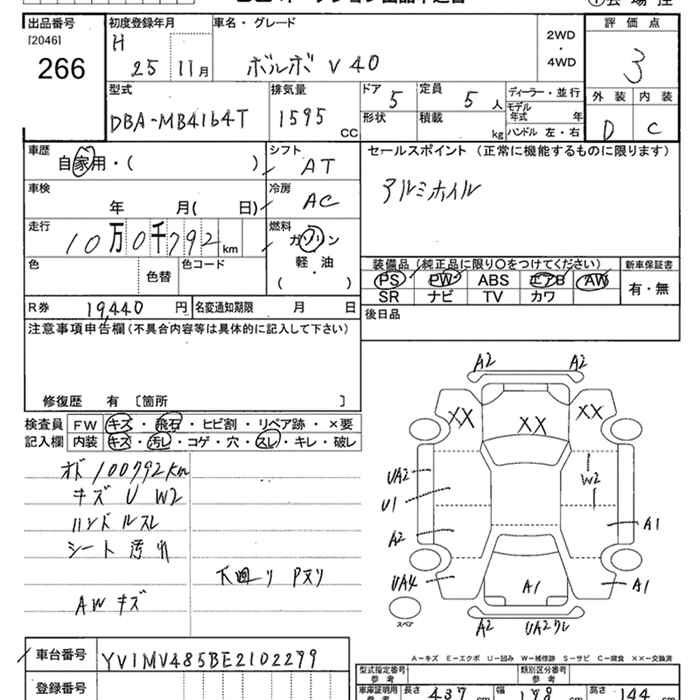 出品番号
[2046]
266
初度登録年月
H
25 11月
車名・グレード
ボルボ V40
2WD
・
4WD
評価点
3
外装 内装
D C
型式
DBA-MB4164T
排気量
1595 CC
ドア 5
形状
定員 5 人
積載 kg
ディーラー・並行
モデル年式 年
ハンドル 左・右
車歴
自家用・( )
シフト
AT
セールスポイント (正常に機能するものに限ります)
アルミホイル
車検
年 月( 日)
冷房
AC
走行
10万0千792 km
燃料
ガソリン
軽・油
( ・ )
色 色替
色コード
装備品(純正品に限り○をつけてください)
PS PW ABS エアB AW
SR ナビ TV カワ
新車保証書
有・無
R券 19,440 円
名変通知期限 月 日
後日品
注意事項申告欄(不具合内容等は具体的に記入して下さい)
修復歴 有 〔箇所 〕
検査員 FW キズ・飛石・ヒビ割・リペア跡・×要
記入欄 内装 キズ・汚し・コゲ・穴・スレ・キレ・破レ
オド 100792km
キズ U W2
ハンドルスレ
シート 汚れ
下廻り Pヌリ
AW キズ
A2 A2
XX XX XX
UA2
U1
W2
A2
A1
UA4
A1
A1
スペア
A2 UA2クレ
A-キズ E-エクボ U-凹み W-補修跡 S-サビ C-腐食 XX-交換済
車台番号 YV1MV485BE2102299
登録番号
型式指定番号
参考
類別区分番号
参考
車庫証明用
参考
長さ 437 cm 幅 178 cm 高さ 144 cm